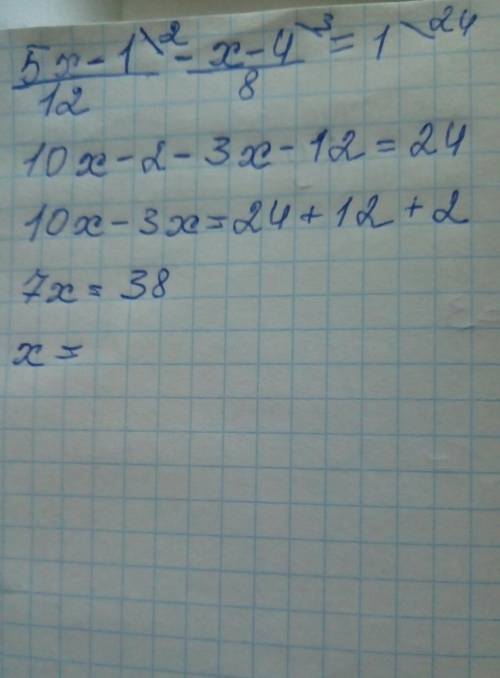 5x-1\2 / 12 - x-4\3 / 8 = 1\24
10x-2-3x-12=24
10x-3x=24+12+2
7x=38
x=